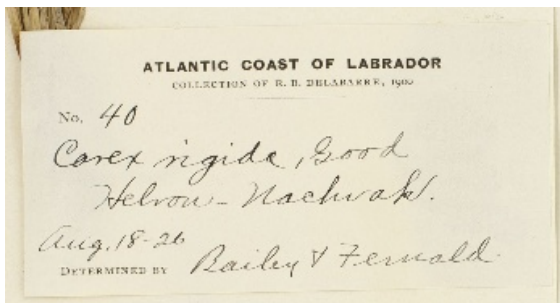 ATLANTIC COAST OF LABRADOR
COLLECTION OF E. B. DELABARRE, 1900
No. 40
Carex rigida, Good
Hebron - Nachvak.
Aug. 18-26
DETERMINED BY Bailey & Fernald.